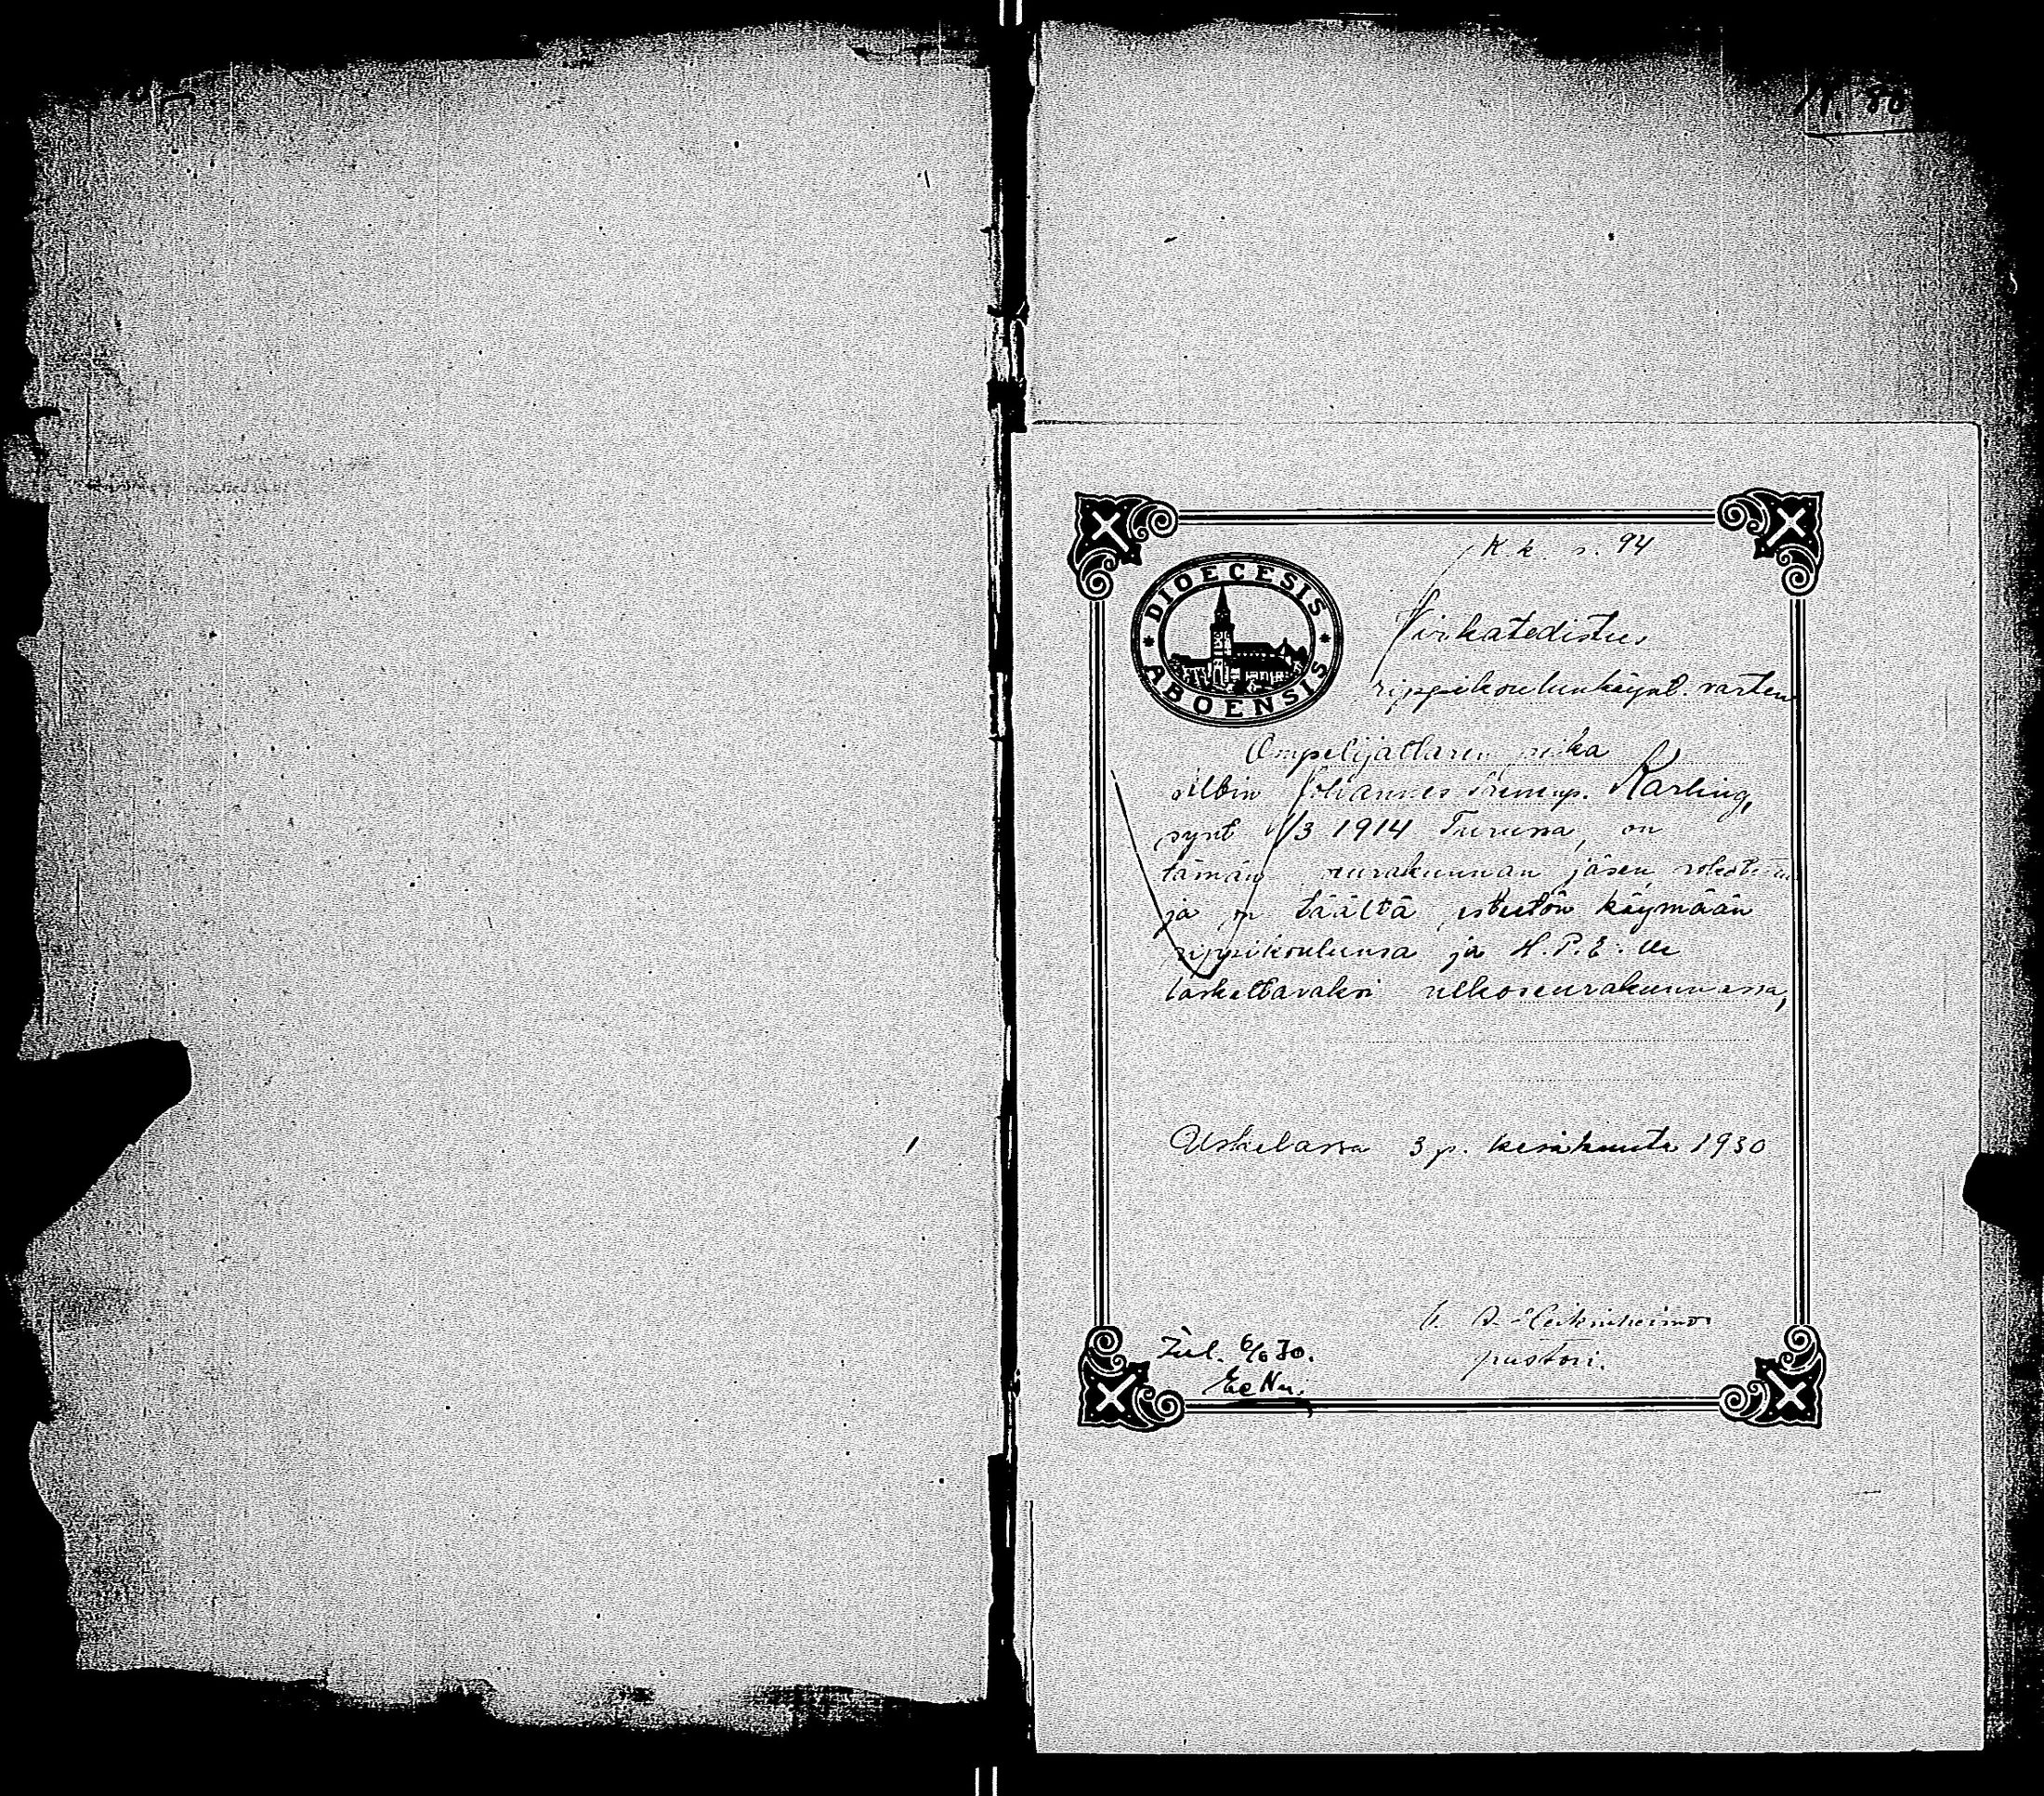 N. 88
K. k. s. 94
DIOECESIS ABOENSIS
Virkatodistus
rippikoulunkäynt. varten
Ompelijattaren poika
Albin Johannes Karling,
synt 1/3 1914 Turussa, on
tämän seurakunnan jäsen, rokotettu
ja on täältä esteetön käymään
rippikoulunsa ja H.P.E:lle
laskettavaksi ulkoseurakunnassa,
Uskelassa 3 p. kesäkuuta 1930
Heikinheimo
pastori.
Tul. 6/6 30.